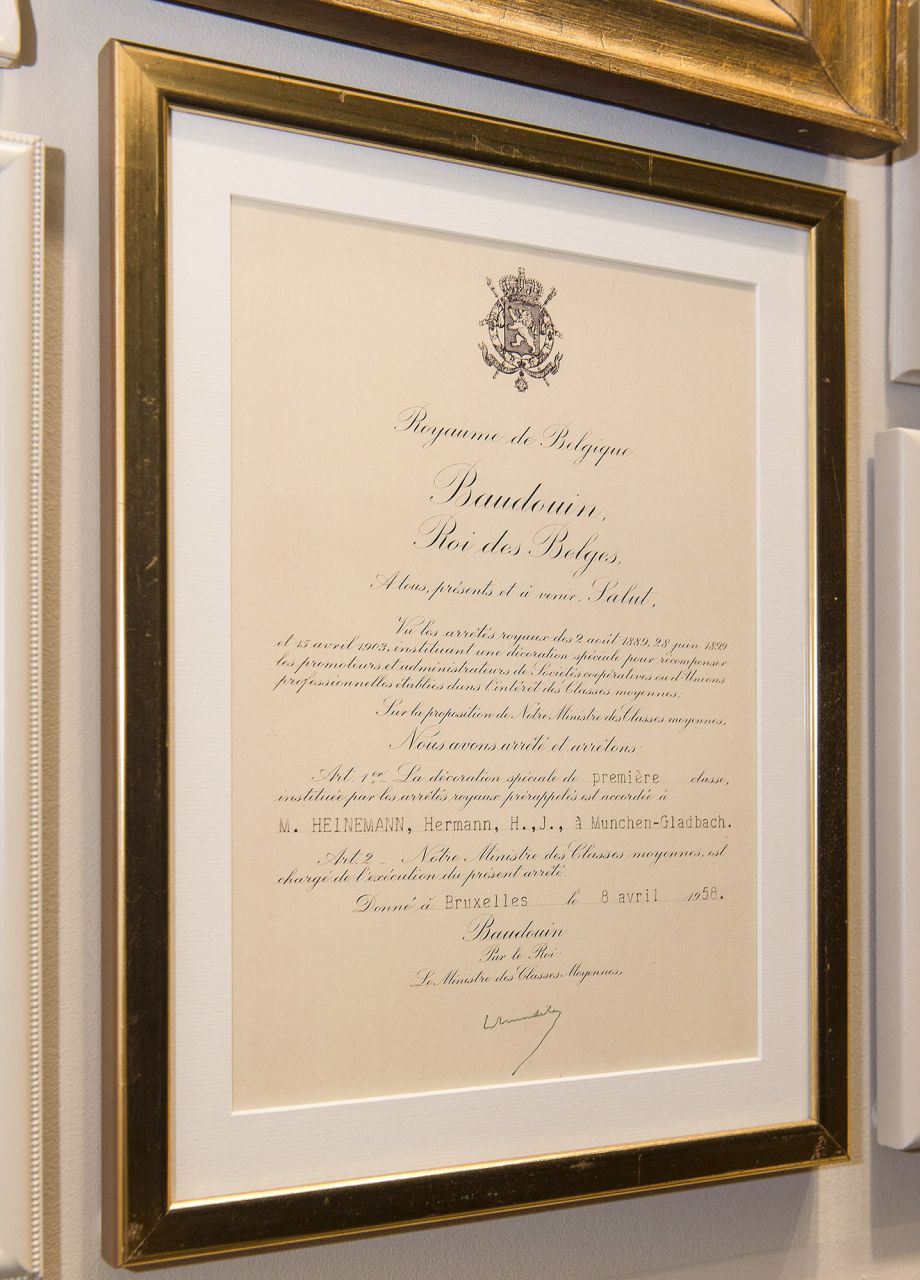 Royaume de Belgique
Baudouin,
Roi des Belges,
A tous, présents et à venir, Salut,
Vu les arrêtés royaux des 2 août 1889, 28 juin 1899
et 15 avril 1903, instituant une décoration spéciale pour récompenser
les promoteurs et administrateurs de Sociétés coopératives ou d'Unions
professionnelles établies dans l'intérêt des Classes moyennes;
Sur la proposition de Notre Ministre des Classes moyennes,
Nous avons arrêté et arrêtons:
Art. 1er – La décoration spéciale de première classe,
instituée par les arrêtés royaux prérappelés est accordée à
M. HEINEMANN, Hermann, H.,J., à Munchen-Gladbach.
Art. 2 – Notre Ministre des Classes moyennes, est
chargé de l'exécution du présent arrêté.
Donné à Bruxelles le 8 avril 1958.
Baudouin
Par le Roi:
Le Ministre des Classes Moyennes,